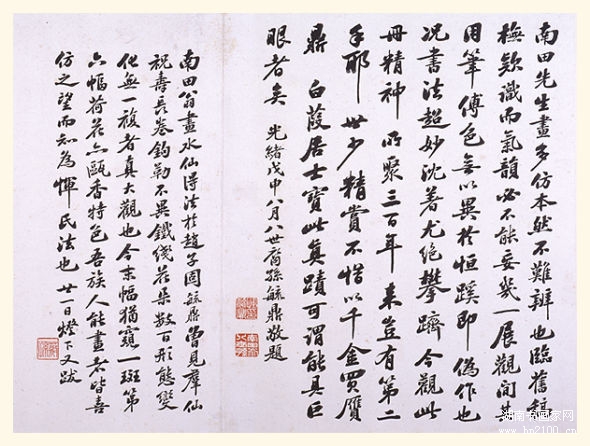 南田先生畫多仿本然不難辨也臨舊頗
橅欵識而氣韻必不能妄幾一展觀間其
用筆傅色無以異於恒蹊即偽作也
况書法超妙沈著尤絕攀躋今觀此
冊精神所聚三百年來豈有第二
手耶世少精賞不惜以千金買贋
鼎白葭居士寶此真蹟可謂能具巨
眼者矣光緒戊申八月八世裔孫毓鼎敬題
南田翁畫水仙得法於趙子固毓鼎曾見羣仙
祝壽長卷鉤勒不異鐵綫花葉數百形態變
化無一複者真大觀也今末幅猶窺一斑第
六幅荷花亦甌香特色吾族人能畫者皆喜
仿之望而知為惲氏法也廿一日燈下又跋
湖南书画家网
www.hn2100.cn